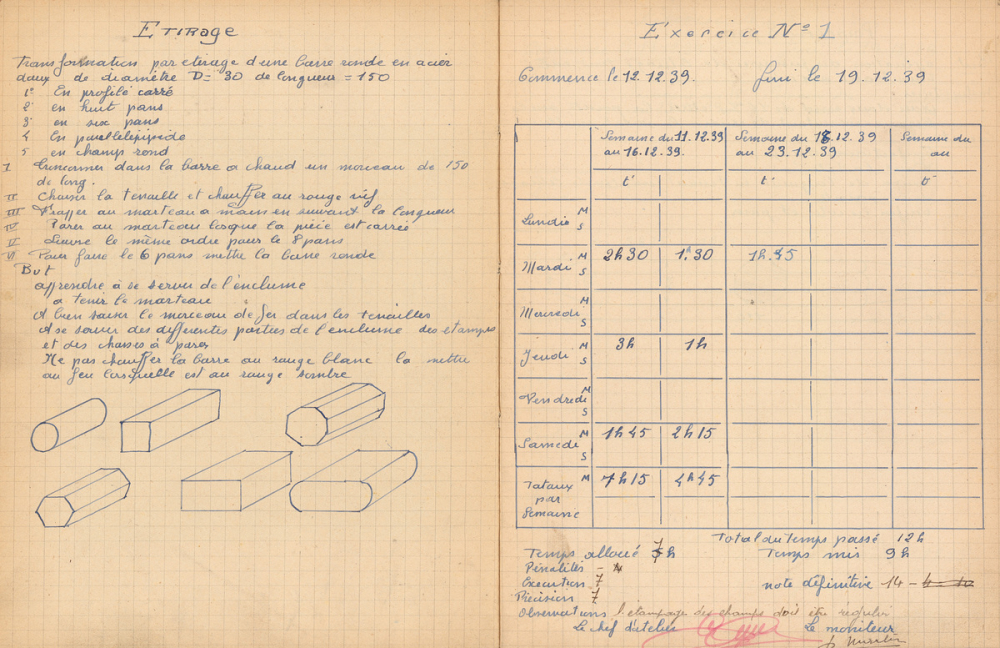 Etirage
Transformation par etirage d'une barre ronde en acier
doux de diamètre D = 30 de longueur = 150
1° En profilé carré
2° en huit pans
3° en six pans
4 En parallélépipède
5 en champs ronds
I Tronconner dans la barre a chaud un morceau de 150
de long.
II Choisir la tenaille et chauffer au rouge vif
III Frapper au marteau a main en suivant la longueur
IV Parer au marteau lorsque la pièce est carrée
V Suivre le même ordre pour le 8 pans
VI Pour faire le 6 pans mettre la barre ronde
But
apprendre à se servir de l'enclume
a tenir le marteau
A bien saisir le morceau de fer dans les tenailles
A se servir des differentes parties de l'enclume des etampes
et des chasses à parer
Ne pas chauffer la barre au rouge blanc la mettre
au feu lorsquelle est au rouge sombre
Exercice N° 1
Commencé le 12.12.39. fini le 19.12.39
Semaine du 11.12.39 Semaine du 18.12.39 Semaine du
au 16.12.39. au 23.12.39 au
t' t' t'
Lundi M
S
Mardi M 2h30 1h30 1h.45
S
Mercredi M
S
Jeudi M 3h 1h
S
Vendredi M
S
Samedi M 1h45 2h15
S
Totaux M 7h15 4h45
par
Semaine
Total du temps passé 12h
Temps alloué 7h Temps mis 9h
Pénalités -
Execution 7 note définitive 14 -
Précision 7
Observations l'etampage des champs doit être régulier
Le chef d'atelier Le moniteur